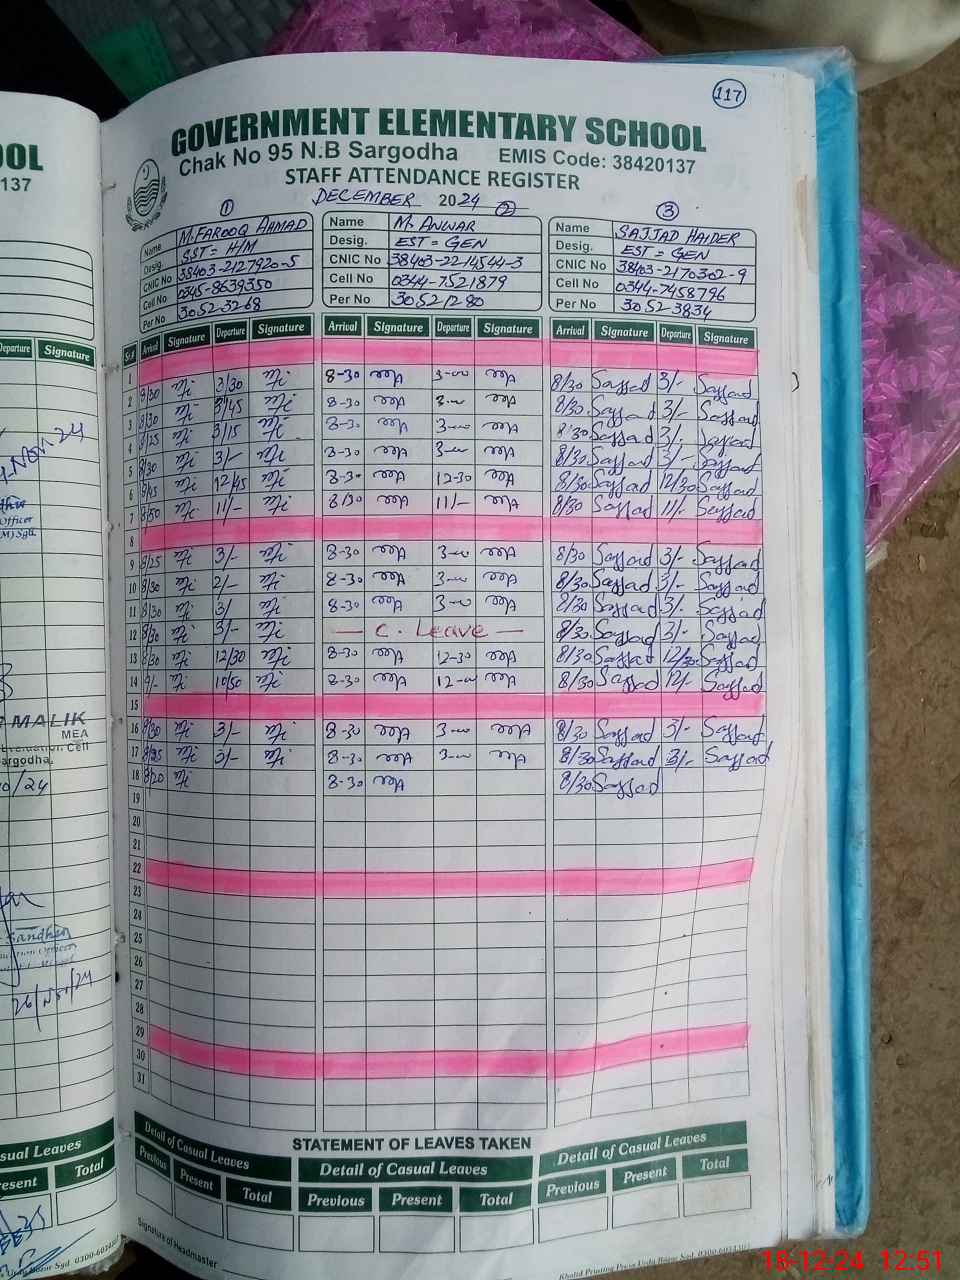 117
GOVERNMENT ELEMENTARY SCHOOL
Chak No 95 N.B Sargodha EMIS Code: 38420137
STAFF ATTENDANCE REGISTER
DECEMBER 2024
1 2 3
Name M.FAROOQ AHMAD Name M. ANWAR Name SAJJAD HAIDER
Desig. SST = H/M Desig. EST = GEN Desig. EST = GEN
CNIC No 38403-2127920-5 CNIC No 38403-2214544-3 CNIC No 38403-2170302-9
Cell No 0345-8639350 Cell No 0344-7521879 Cell No 0344-7458796
Per No 3052-3268 Per No 30521280 Per No 3052-3834
Sr.# Arrival Signature Departure Signature Arrival Signature Departure Signature Arrival Signature Departure Signature
1
2 8/30 3/30 8-30 3-00 8/30 Sajjad 3/- Sajjad
3 8/30 3/45 8-30 3-00 8/30 Sajjad 3/- Sajjad
4 8/25 3/15 8-30 3-00 8/30 Sajjad 3/- Sajjad
5 8/30 3/- 8-30 3-00 8/30 Sajjad 3/- Sajjad
6 12/45 8-30 12-30 8/30 Sajjad 12/30 Sajjad
7 11/- 8/30 11/- 8/30 Sajjad 11/- Sajjad
8
9 8/25 3/- 8-30 3-00 8/30 Sajjad 3/- Sajjad
10 8/30 2/- 8-30 3-00 8/30 Sajjad 3/- Sajjad
11 8/30 3/ 8-30 3-00 8/30 Sajjad 3/- Sajjad
12 8/30 3/- — C. Leave — 8/30 Sajjad 3/- Sajjad
13 8/30 12/30 8-30 12-30 8/30 Sajjad 12/30 Sajjad
14 9/- 10/50 8-30 12-00 8/30 Sajjad 12/- Sajjad
15
16 8/30 3/- 8-30 3-00 8/30 Sajjad 3/- Sajjad
17 3/- 8-30 3-00 8/30 Sajjad 3/- Sajjad
18 8/20 8-30 8/30 Sajjad
19
20
21
22
23
24
25
26
27
28
29
30
31
STATEMENT OF LEAVES TAKEN
Detail of Casual Leaves Detail of Casual Leaves Detail of Casual Leaves
Previous Present Total Previous Present Total Previous Present Total
Signature of Headmaster
Khalid Printing Press Urdu Bazar Sgd. 0300-6034303
OOL
137
Departure Signature
Officer
(M) Sgd
MALIK
MEA
Cell
argodha.
26/Nov/24
sual Leaves
resent Total
Urdu Bazar Sgd. 0300-6034303
18-12-24 12:51